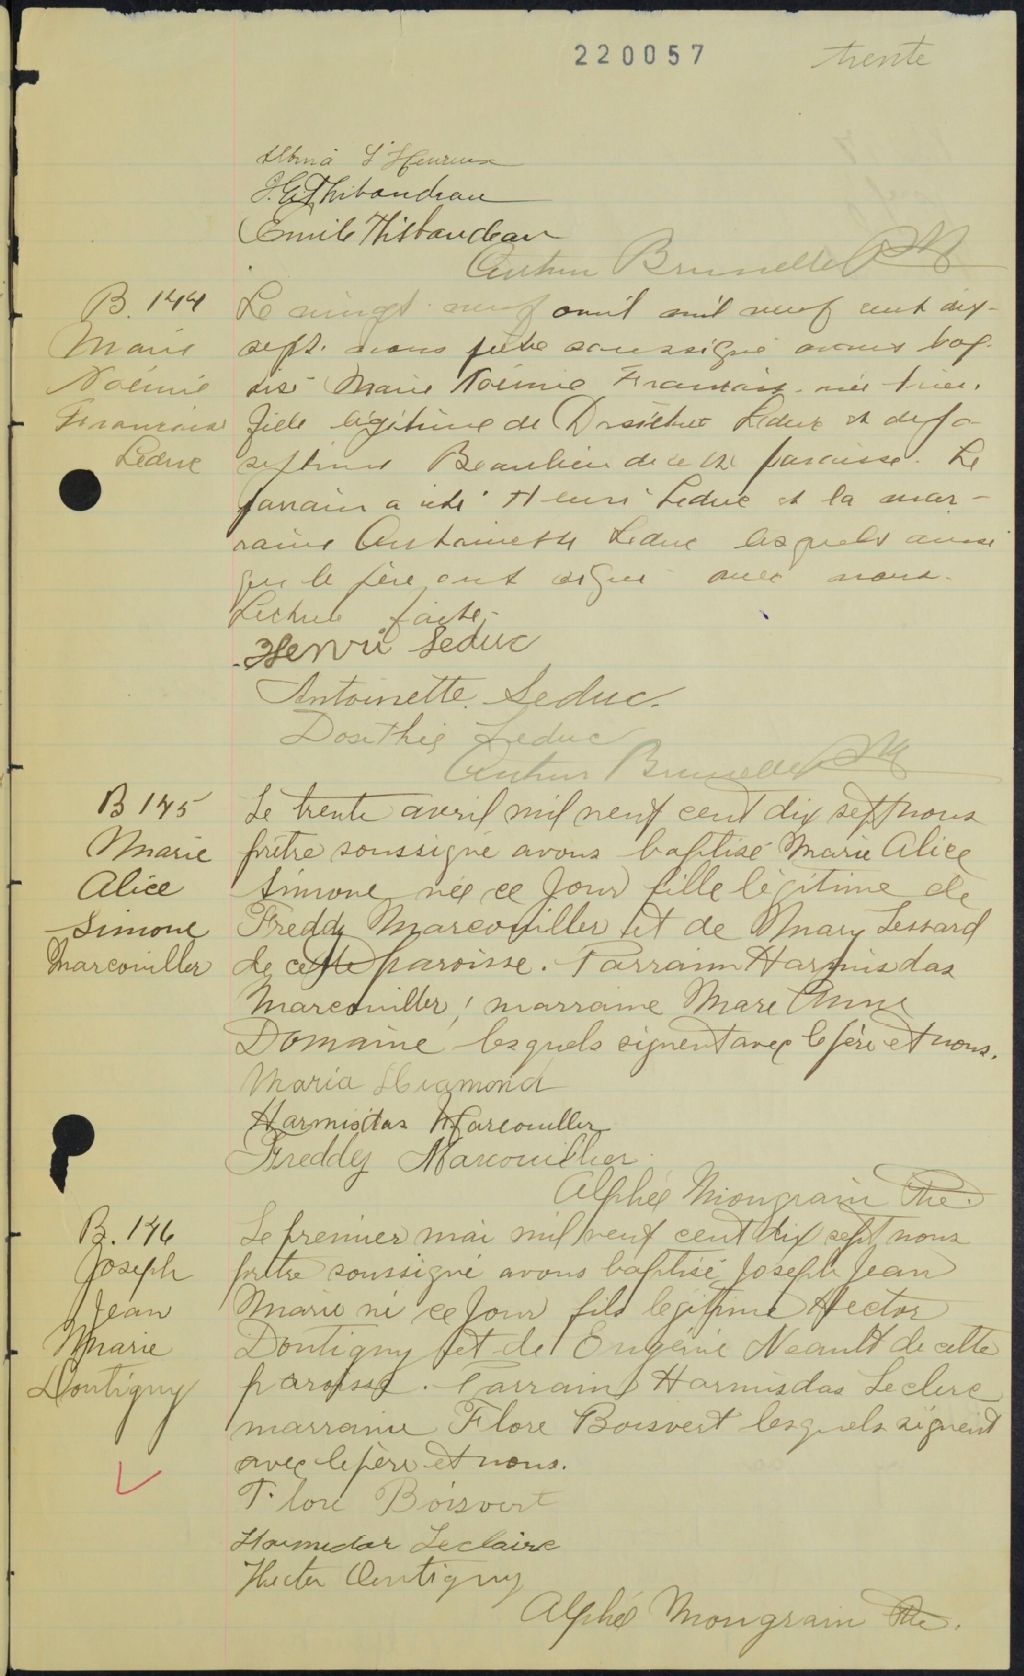 220057
trente
Albina L'Heureux
J. G. Thibaudeau
Emile Thibaudeau
Arthur Brunelle Ptr
B. 144
Marie
Noémie
Francoise
Leduc
Le vingt neuf avril mil neuf cent dix-
sept. nous prêtre soussigné avons bap-
tisé Marie Noémie Francoise née hier,
fille légitime de Dosithée Leduc et de Jo-
sephine Beaulieu de cette paroisse. Le
parrain a été Henri Leduc et la mar-
raine Antoinette Leduc lesquels ainsi
que le père ont signé avec nous.
Lecture faite.
Henri Leduc
Antoinette Leduc.
Dosithée Leduc
Arthur Brunelle Ptr
B 145
Marie
Alice
Simone
Marcouiller
Le trente avril mil neuf cent dix sept nous
prêtre soussigné avons baptisé Marie Alice
Simone née ce jour fille légitime de
Freddy Marcouiller et de Mary Lessard
de cette paroisse. Parrain Harmisdas
Marcouiller; marraine Marie Anne
Domaine lesquels signent avec le père et nous.
Maria
Harmisdas Marcouiller
Freddy Marcouiller
Alphée Mongrain Ptre.
B. 146
Joseph
Jean
Marie
Dontigny
Le premier mai mil neuf cent dix sept nous
prêtre soussigné avons baptisé Joseph Jean
Marie né ce jour fils légitime Hector
Dontigny et de Eugénie Neault de cette
paroisse. Parrain Harmisdas Leclerc
marraine Flore Boisvert lesquels signent
avec le père et nous.
Flore Boisvert
Harmedas Leclaire
Hector Dontigny
Alphée Mongrain Ptre.